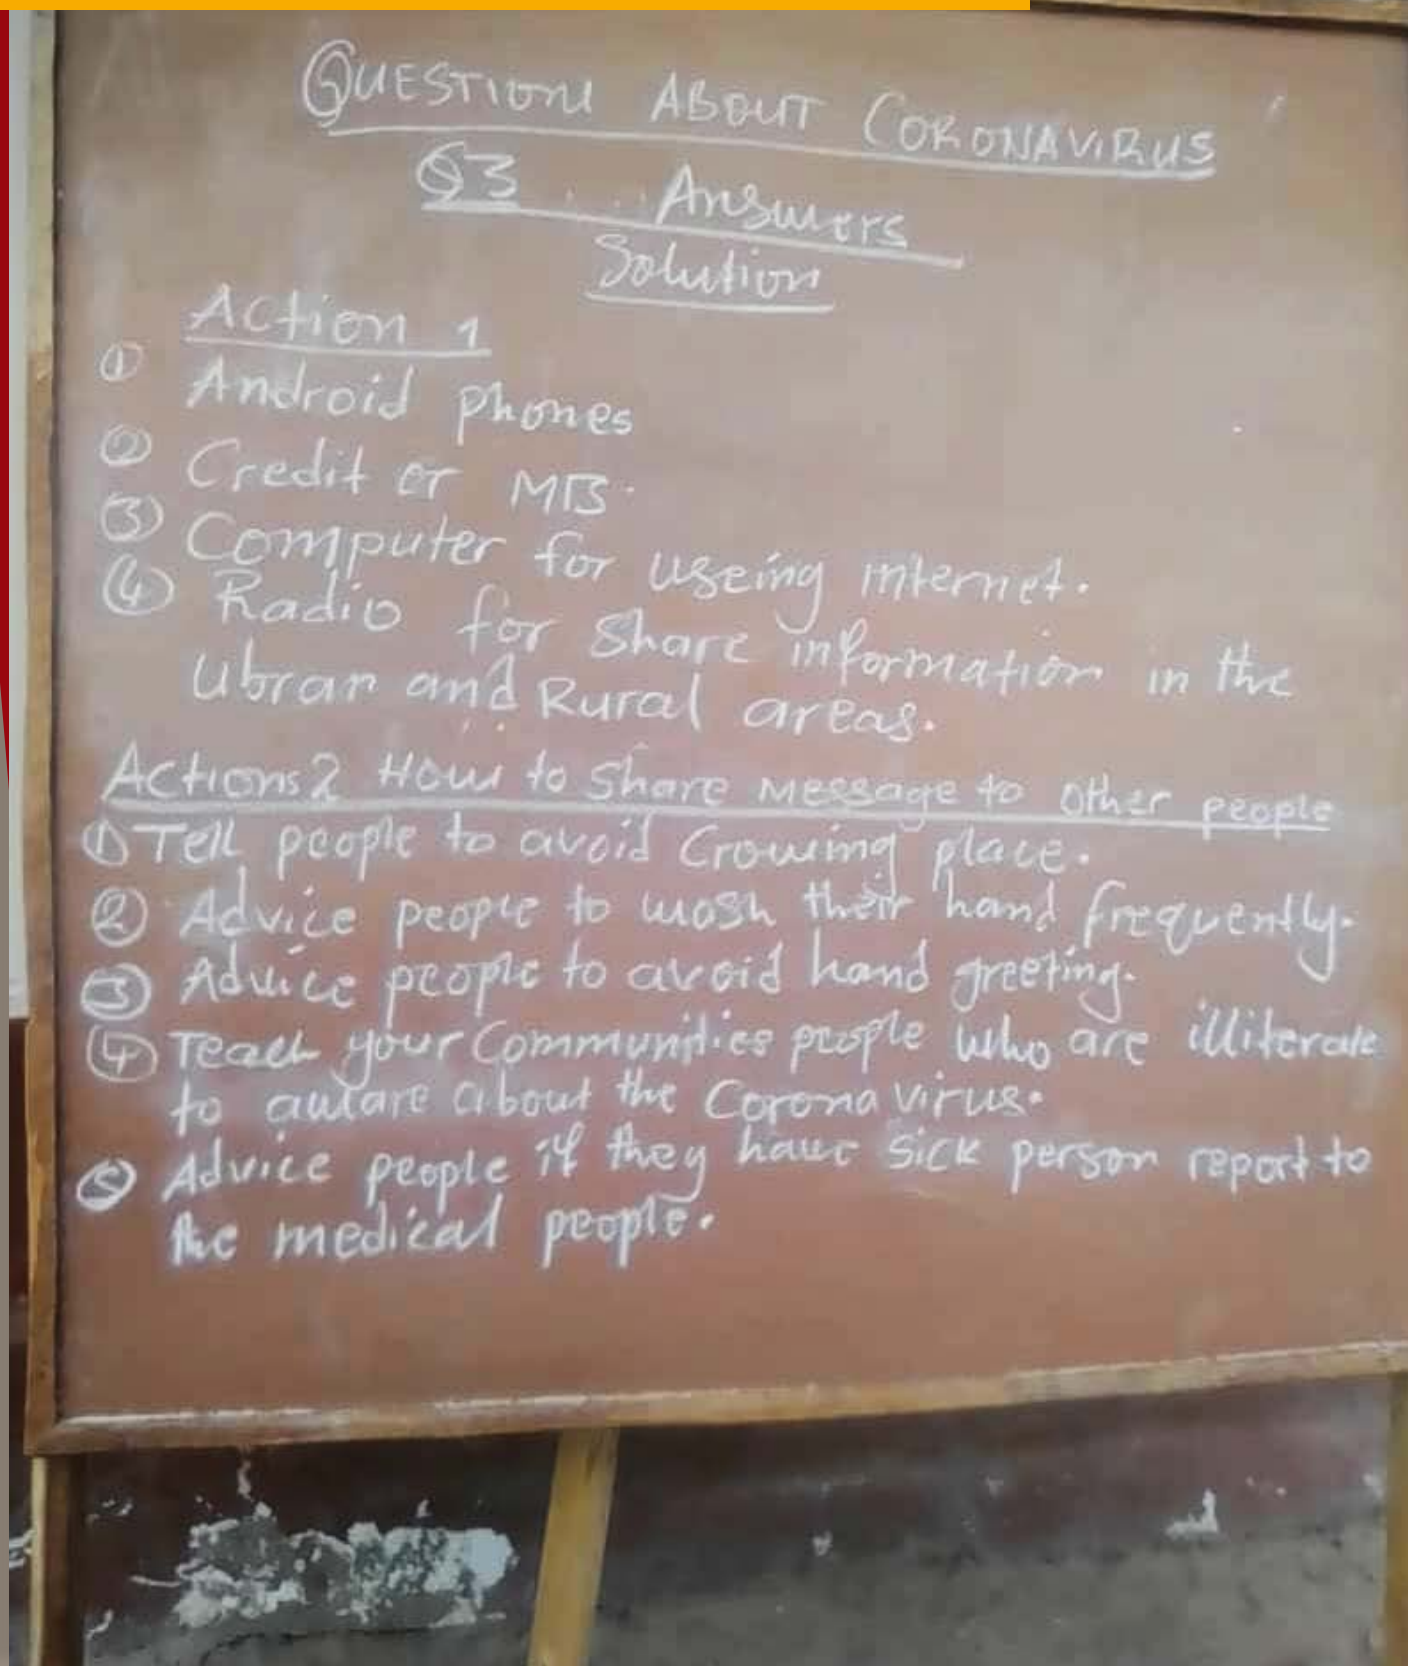 QUESTIONS ABOUT CORONAVIRUS
Q3 .... Answers
Solution
Action 1
① Android phones
② Credit or MB.
③ Computer for useing internet.
④ Radio for Share information in the
Ubran and Rural areas.
Actions 2 How to Share Message to Other people
① Tell people to avoid Crowing place.
② Advice people to wash their hand frequently.
③ Advice people to avoid hand greeting.
④ Teach your Communities people who are illiterate
to aware about the Corona virus.
⑤ Advice people if they have sick person report to
the medical people.